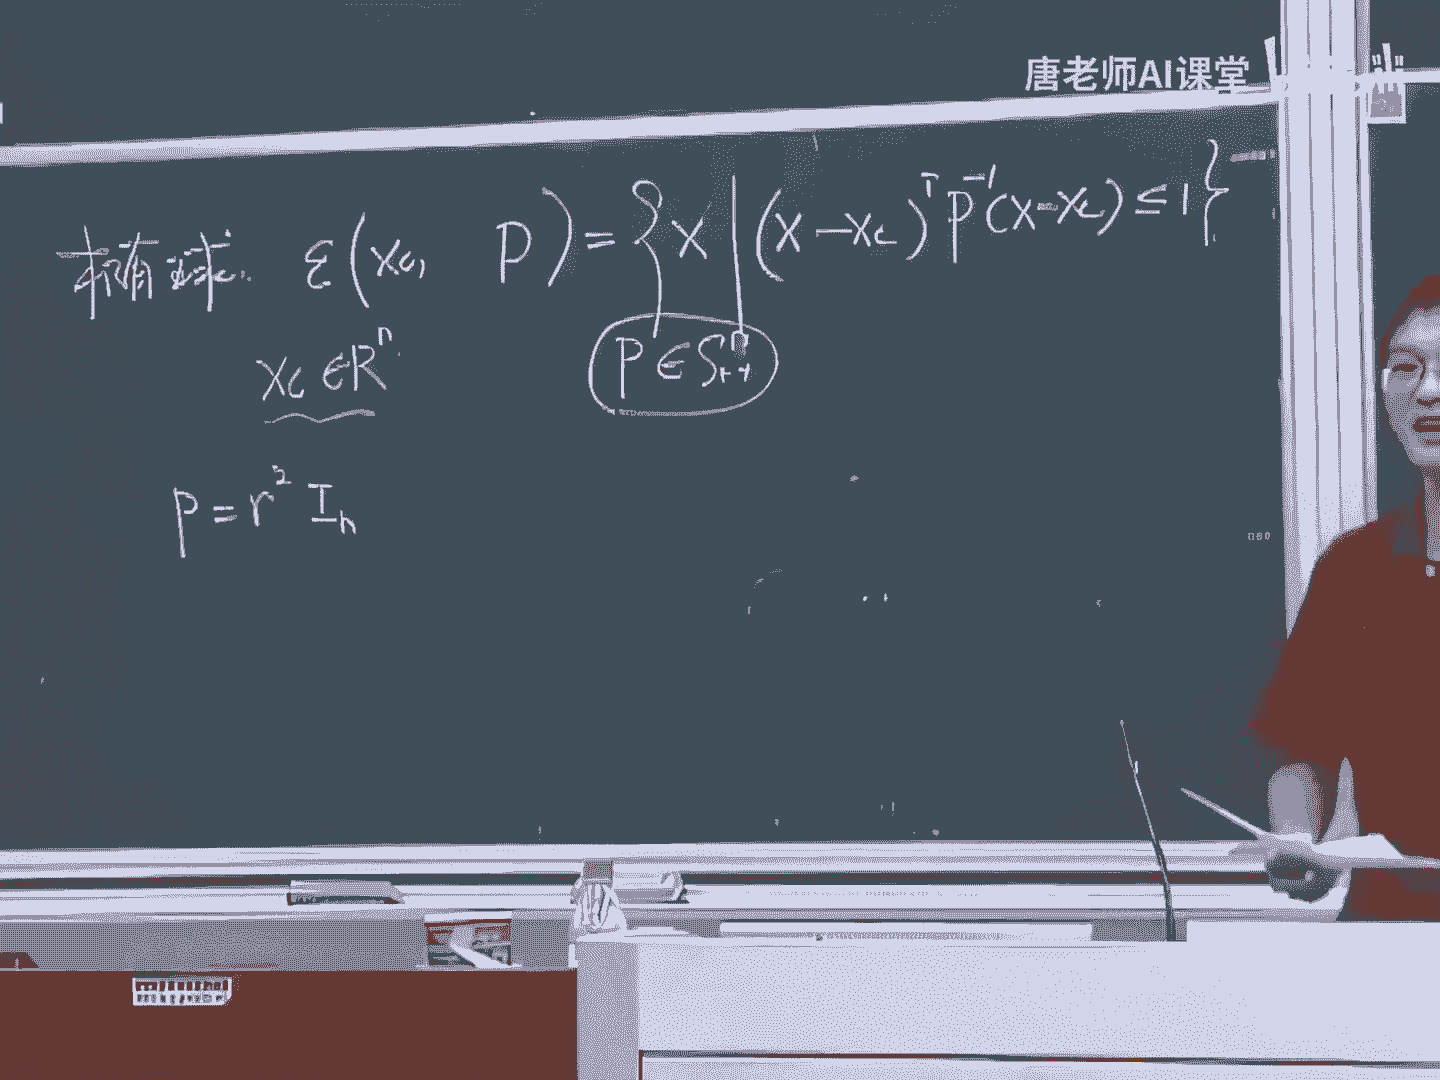 唐老师AI课堂
椭球: ε(xc, P) = {x | (x-xc)ᵀP⁻¹(x-xc) ≤ 1}
xc∈Rⁿ P∈Sⁿ₊₊
P = r² Iₙ